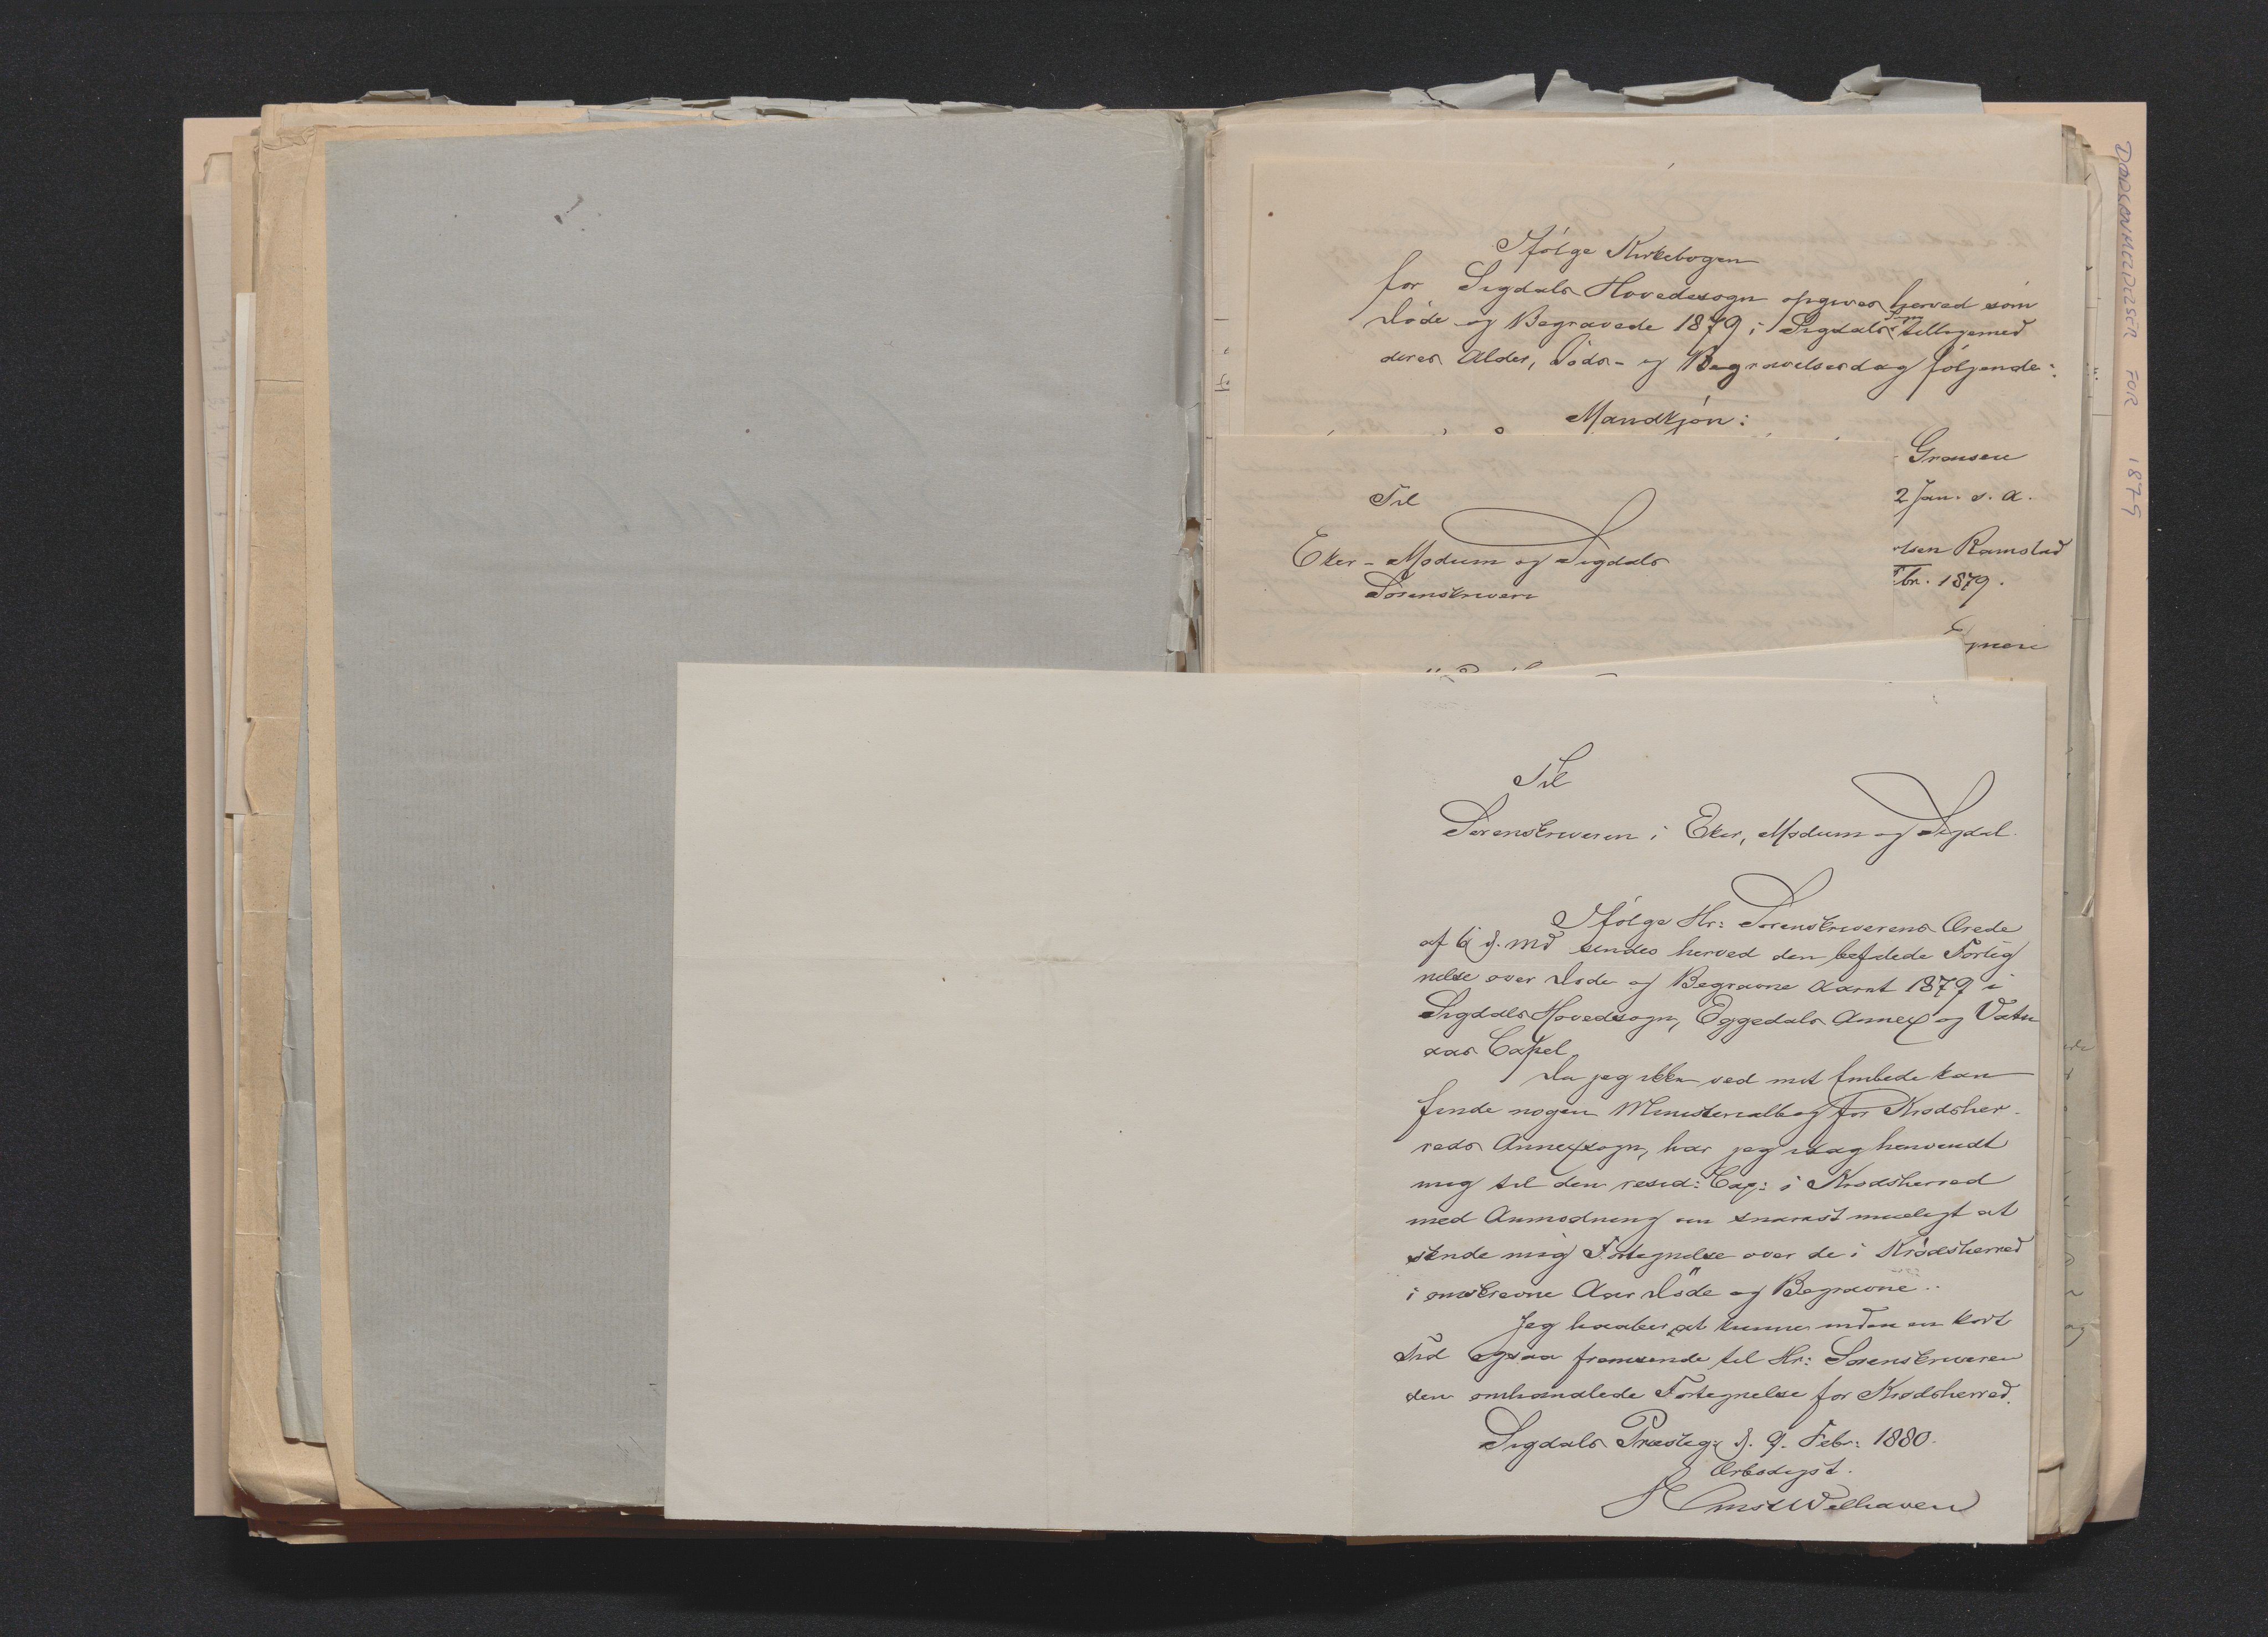 Ifølge Kirkebogen
for Sigdals Hovedsogn opgives herved som
Døde og Begravede 1879 i Sigdals Sogn tilligemed
deres Alder, Døds- og Begravelsesdag følgende:
Mandkjøn:
Gransen
2 Jan. s. A.
olsen Ramstad
Febr. 1879.
Til
Eker-Modum og Sigdals
Sorenskriveri
Til
Sorenskriveren i Eker, Modum og Sigdal.
Ifølge Hr: Sorenskriverens Ærede
af 6 d. Md sendes herved den befalede Forteg
nelse over Døde og Begravne Aaret 1879 i
Sigdals Hovedsogn, Eggedals Annex og Vatn
aas Capel
Da jeg ikke ved mit Embede kan
finde nogen Ministerialbog for Krødsher-
reds Annexsogn, har jeg idag henvendt
mig til den resid: Cap: i Krødsherred
med Anmodning om snarest mueligt at
sende mig Fortegnelse over de i Krødsherred
i omskrevne Aar Døde og Begravne.
Jeg haaber at kunne inden en kort
Tid ogsaa fremsende til Hr: Sorenskriveren
den omhandlede Fortegnelse for Krødsherred.
Sigdals Præsteg: d. 9. Febr: 1880.
Ærbødigst.
Welhaven
DØDSANMELDELSER FOR 1879